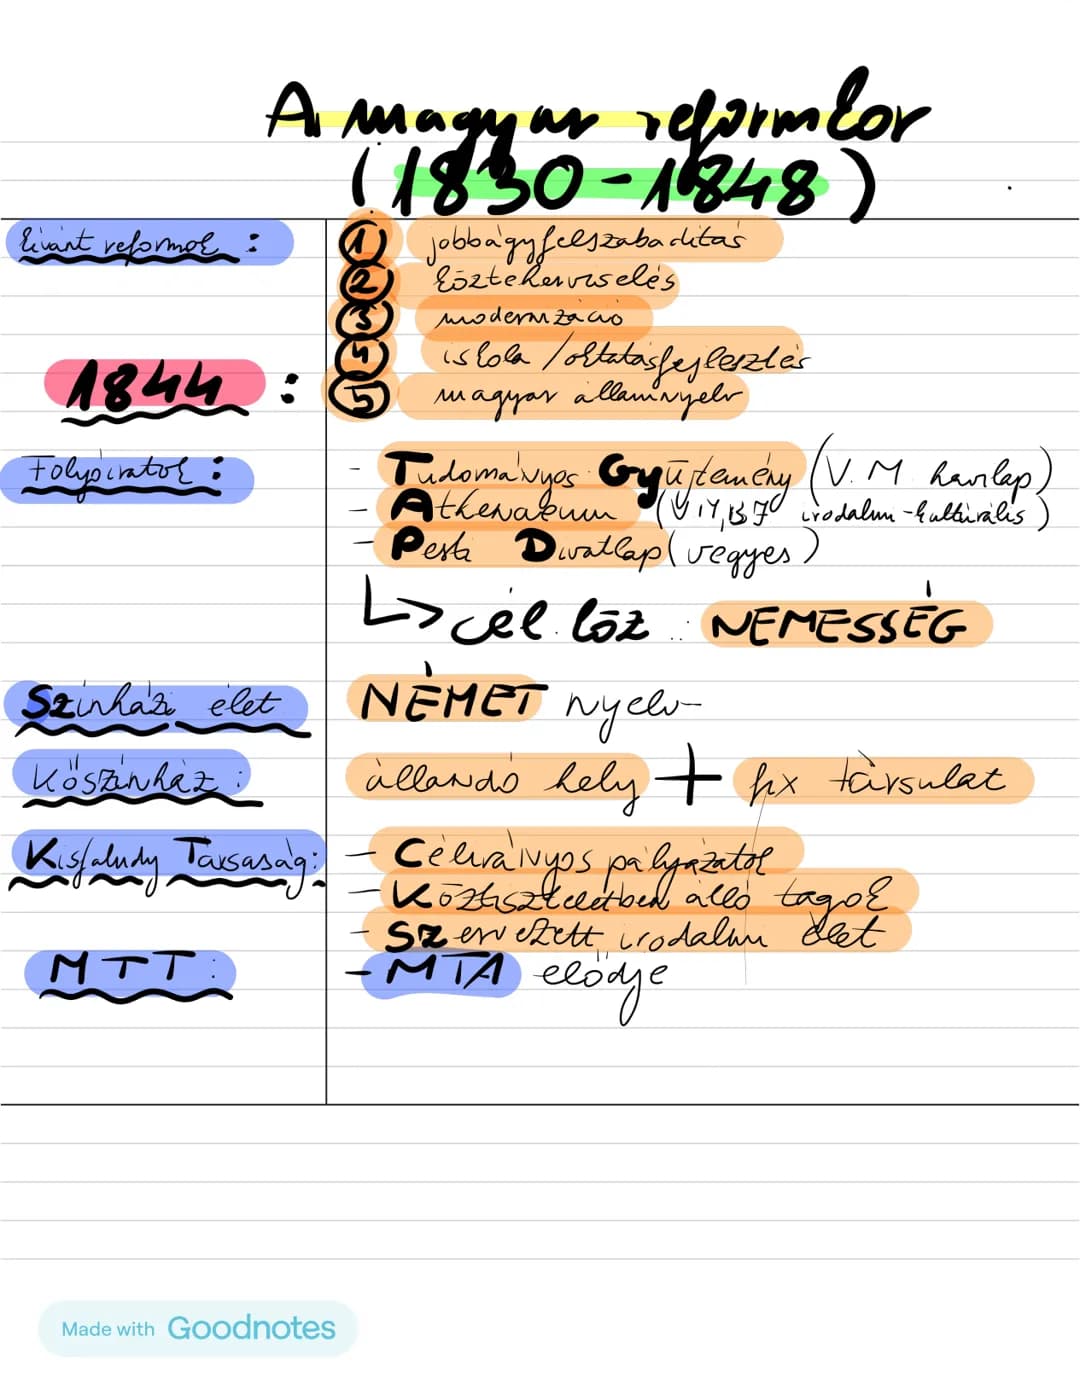 A magyar reformkor
(1830-1848)
kívánt reformok :
① jobbágyfelszabadítás
② közteherviselés
③ modernizáció
④ iskola/oktatásfejlesztés
1844 :
⑤ magyar államnyelv
Folyóiratok :
- Tudományos Gyűjtemény (V. M havilap)
- Athenaeum ( irodalmi-kulturális)
- Pesti Divatlap (vegyes)
↳ cél. köz : NEMESSÉG
Színházi élet
NÉMET nyelv
Kőszínház :
állandó hely + fix társulat
Kisfaludy Társaság:
- Célirányos pályázatok
- Köztiszteletben álló tagok
- Szervezett irodalmi élet
MTT :
- MTA elődje
Made with Goodnotes